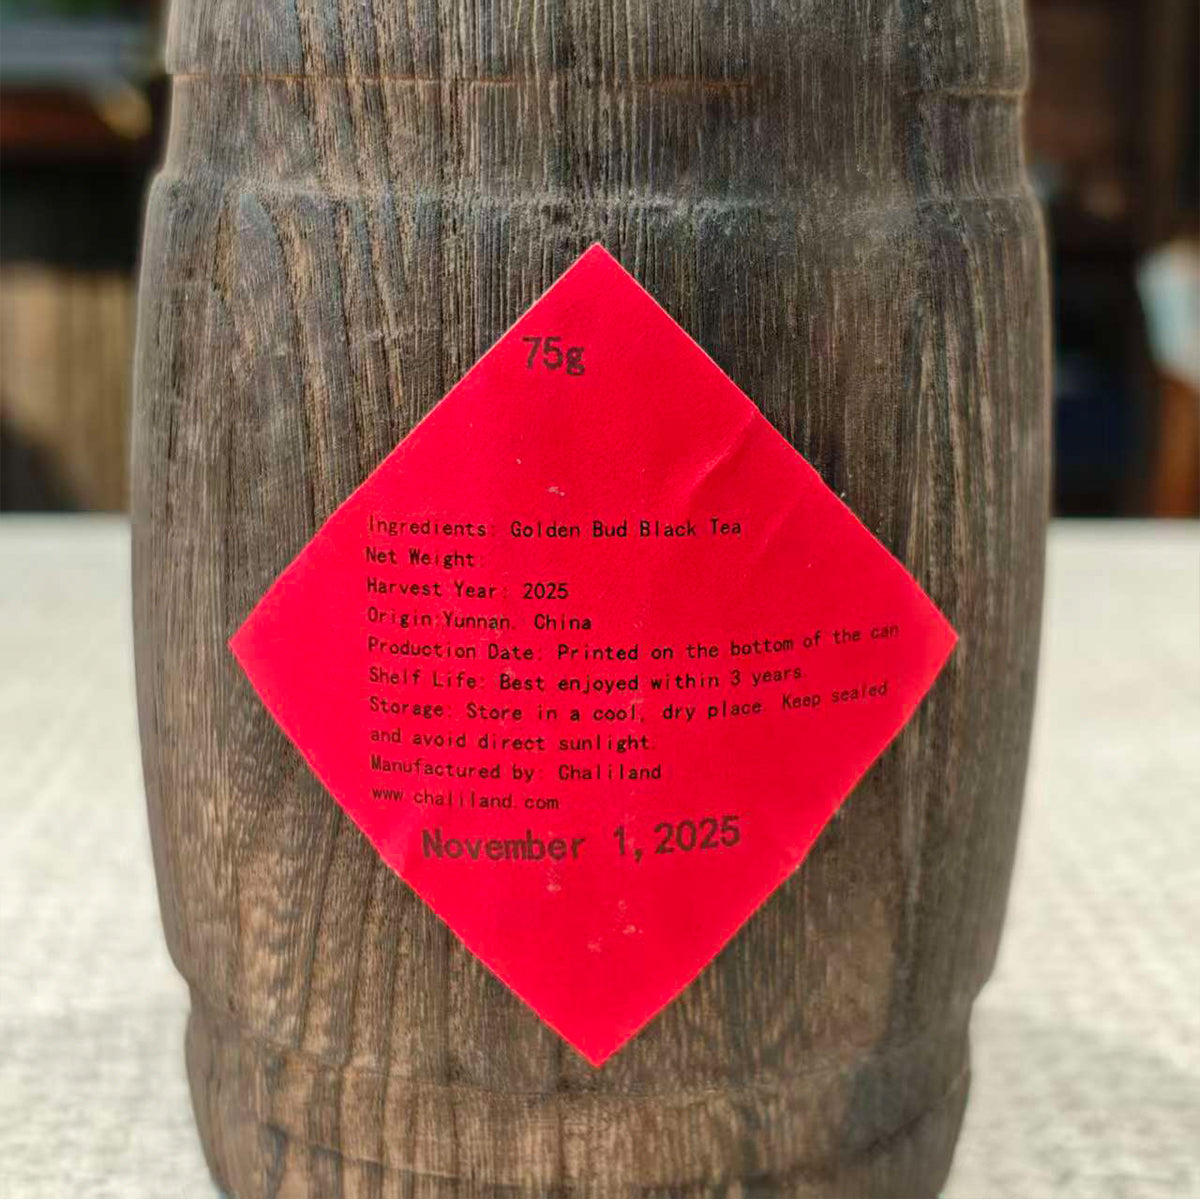 75g
Ingredients: Golden Bud Black Tea
Net Weight:
Harvest Year: 2025
Origin:Yunnan, China
Production Date: Printed on the bottom of the can
Shelf Life: Best enjoyed within 3 years.
Storage: Store in a cool, dry place. Keep sealed
and avoid direct sunlight.
Manufactured by: Chaliland
www.chaliland.com
November 1,2025